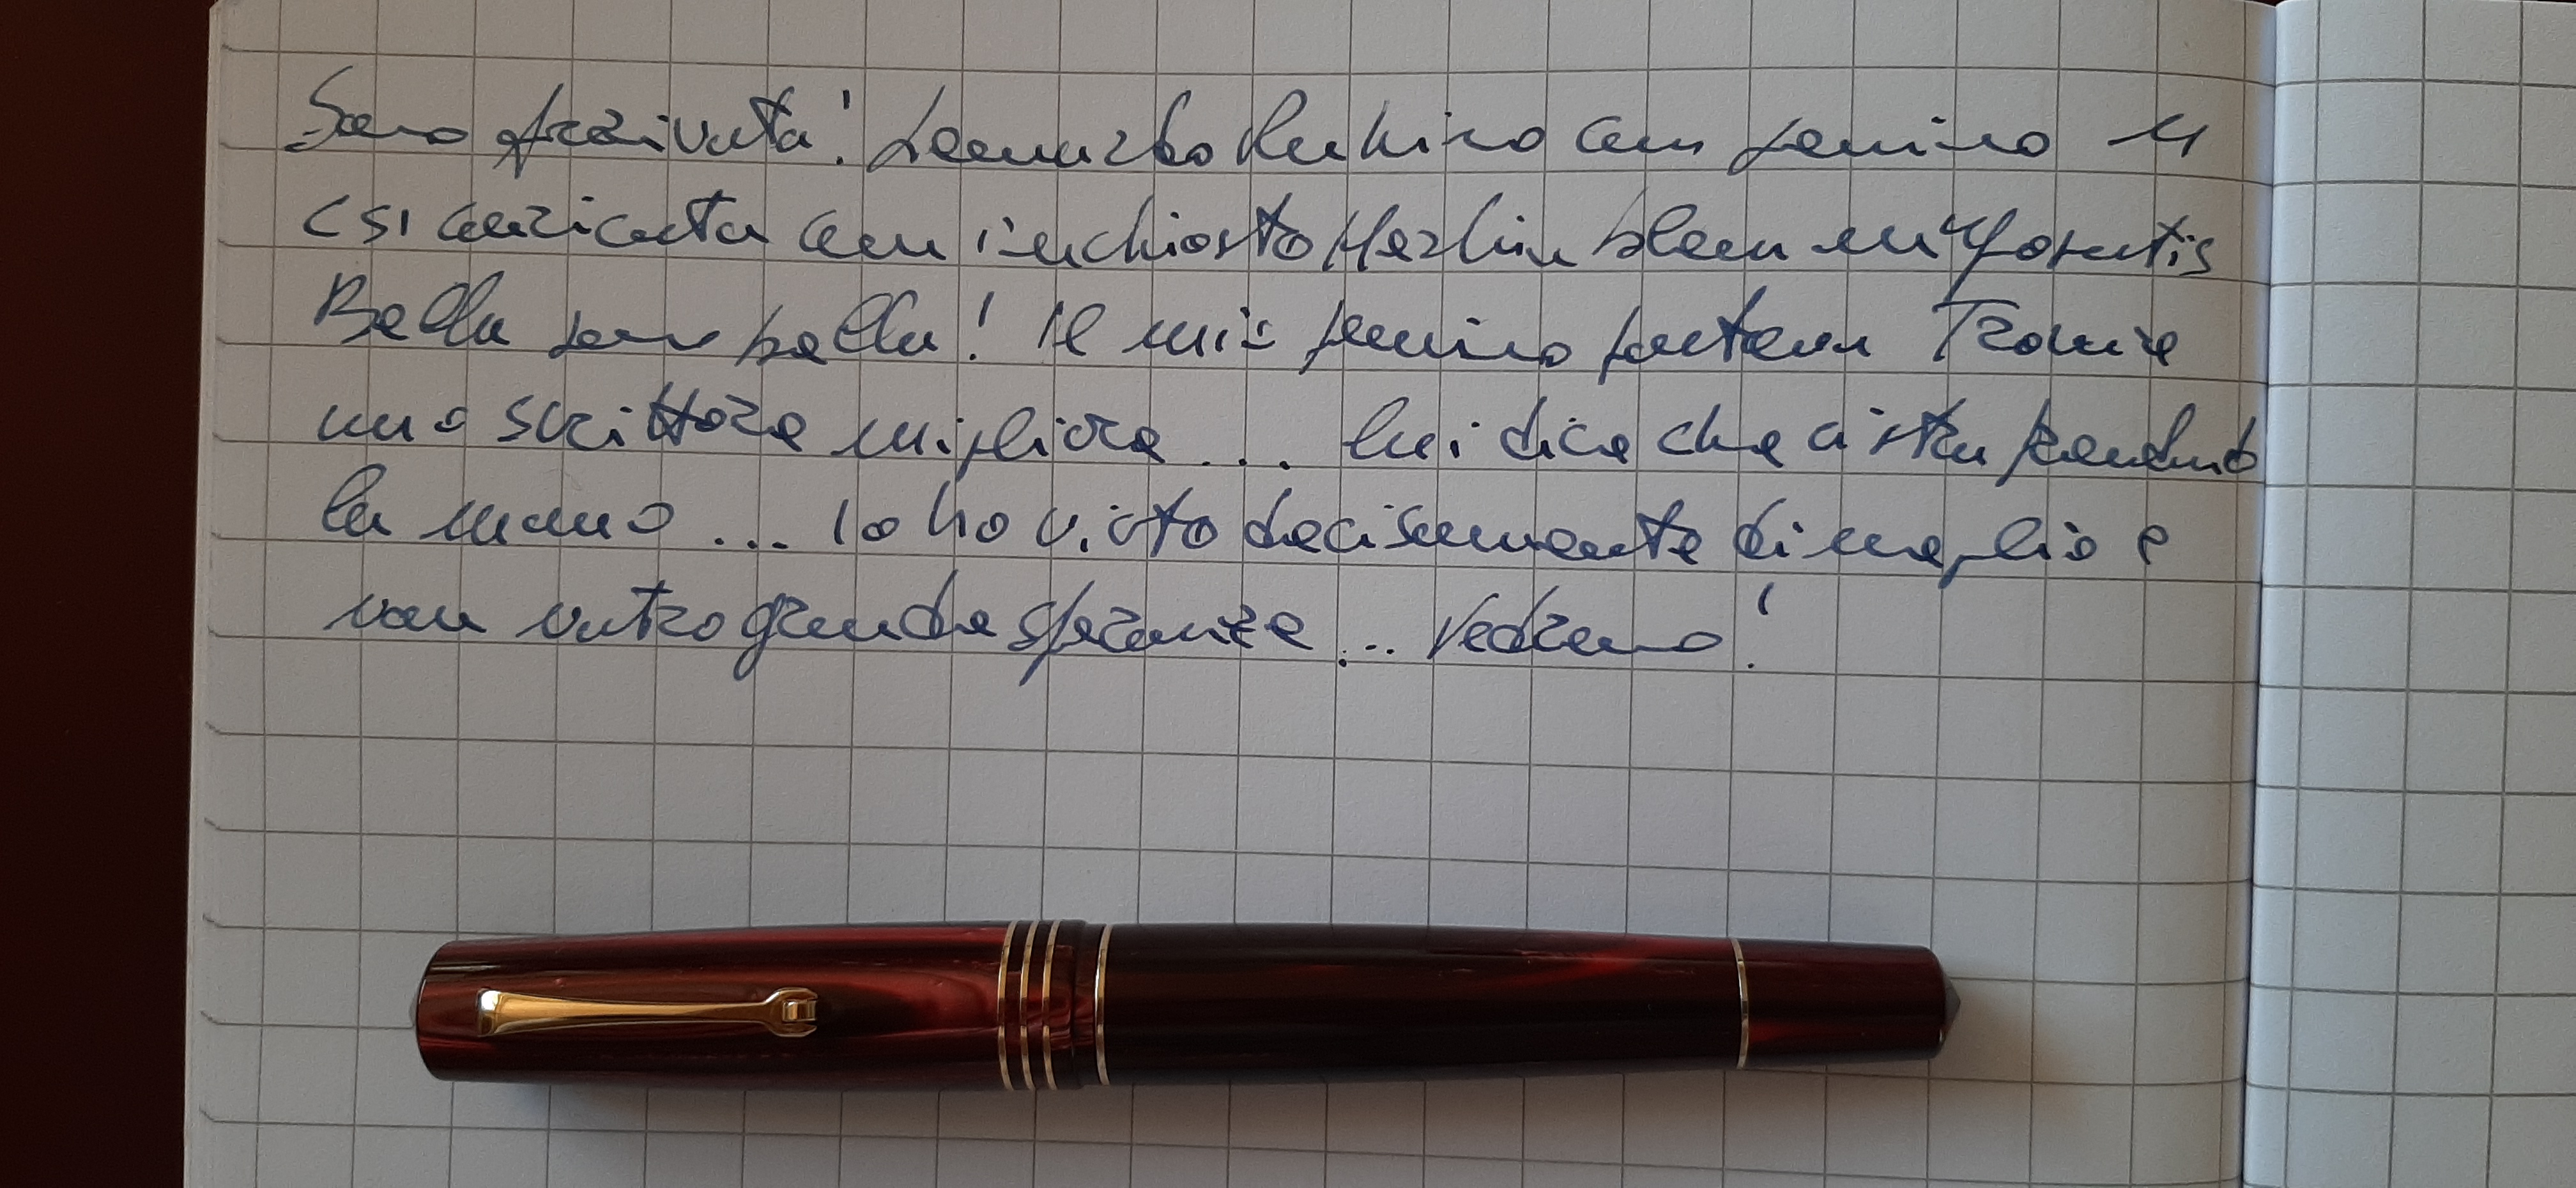 Sono arrivata! Leonardo Rubino con pennino M
C SI caricata con inchiostro Herbin bleu myosotis
Bella sono bella! Il mio pennino poteva trovare
uno scrittore migliore ... lui dice che ci sta prendendo
la mano ... Io ho visto decisamente di meglio e
non nutro grande speranze ... Vedremo!